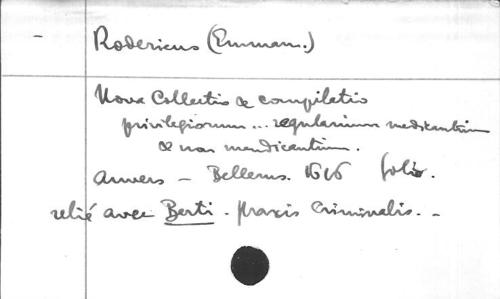 - Rodericus (Emman.)
Nova Collectio & compilatio
privilegiorum ... regularium medicantium
& non mendicantium.
Anvers - Bellerus. 1616 folio.
relié avec Berti. praxis criminalis. -